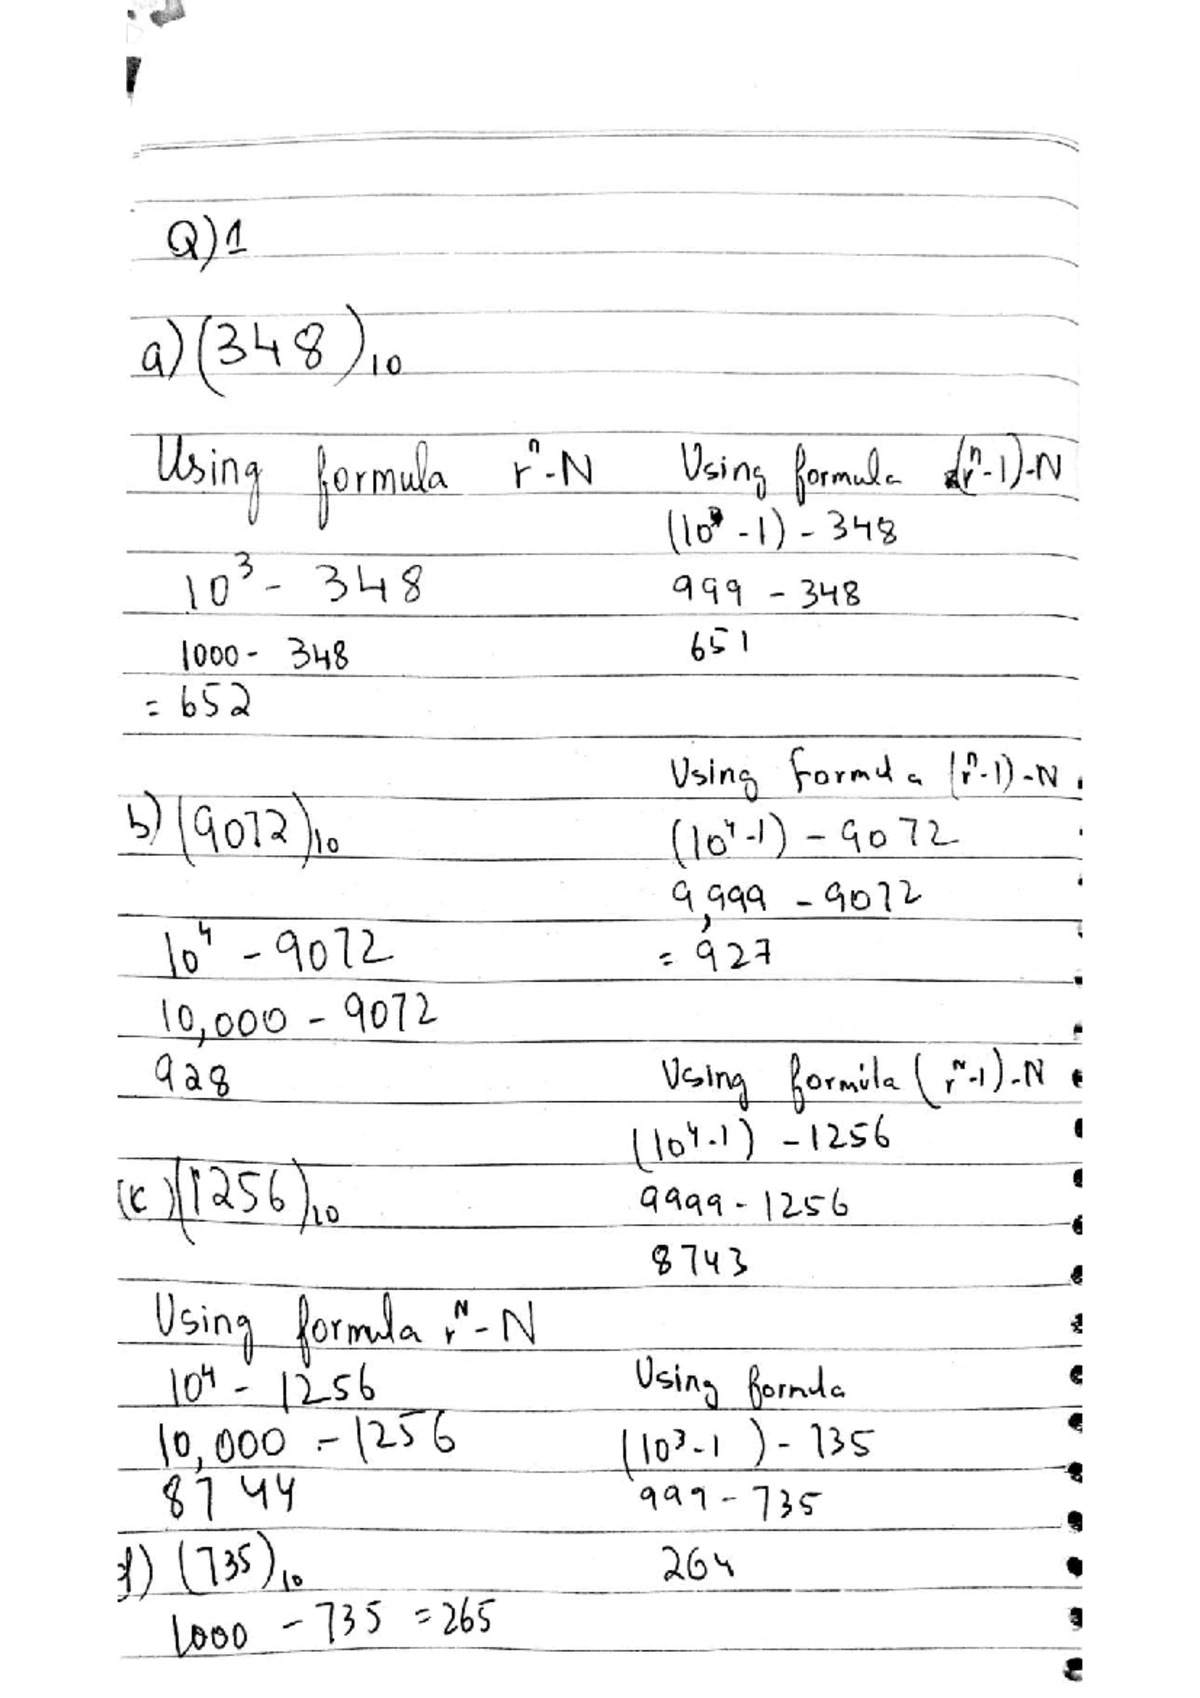 Q)1
a) (348)10
Using formula r^n-N
10^3 - 348
1000 - 348
= 652
Using formula (r^n-1)-N
(10^3 -1) - 348
999 - 348
651
b) (9072)10
10^4 - 9072
10,000 - 9072
928
Using formula (r^n-1)-N
(10^4-1) - 9072
9,999 - 9072
= 927
(c) (1256)10
Using formula r^N-N
10^4 - 1256
10,000 - 1256
8744
Using formula (r^N-1)-N
(10^4-1) - 1256
9999 - 1256
8743
d) (735)10
1000 - 735 = 265
Using formula
(10^3-1) - 735
999 - 735
264